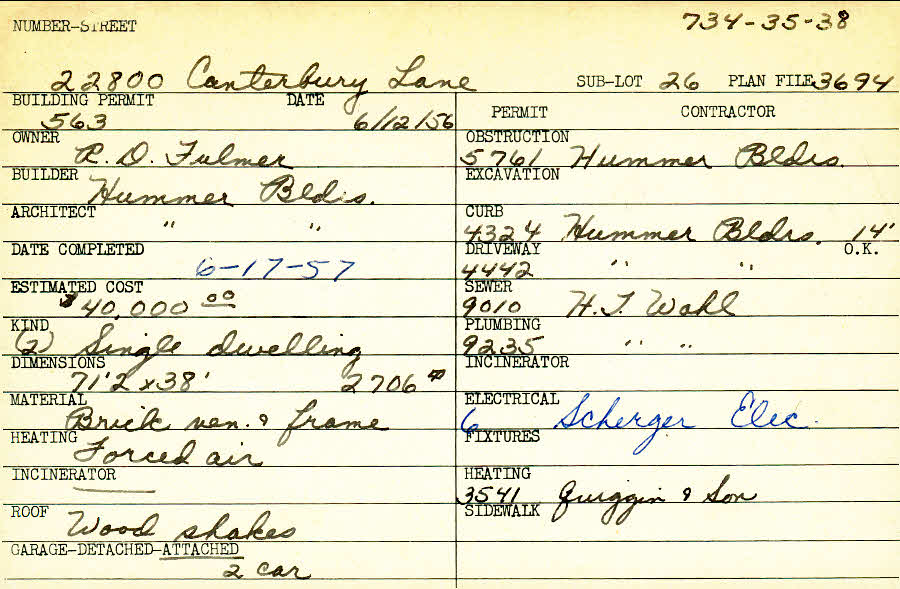 NUMBER-STREET 734-35-38
22800 Canterbury Lane SUB-LOT 26 PLAN FILE 3694
BUILDING PERMIT DATE
563 6/12/56
OWNER
R. D. Fulmer
BUILDER
Hummer Bldrs.
ARCHITECT
" "
DATE COMPLETED
6-17-57
ESTIMATED COST
$40,000 00
KIND
(2) Single dwelling
DIMENSIONS
71'2 x 38' 2706 #
MATERIAL
Brick ven. & frame
HEATING
Forced air
INCINERATOR
ROOF
Wood shakes
GARAGE-DETACHED-ATTACHED
2 car
PERMIT CONTRACTOR
OBSTRUCTION
5761 Hummer Bldrs.
EXCAVATION
CURB
4324 Hummer Bldrs. 14'
DRIVEWAY O.K.
4442 " "
SEWER
9010 H. J. Wahl
PLUMBING
9235 " "
INCINERATOR
ELECTRICAL
6 Scherger Elec.
FIXTURES
HEATING
3541 Quiggin & Son
SIDEWALK